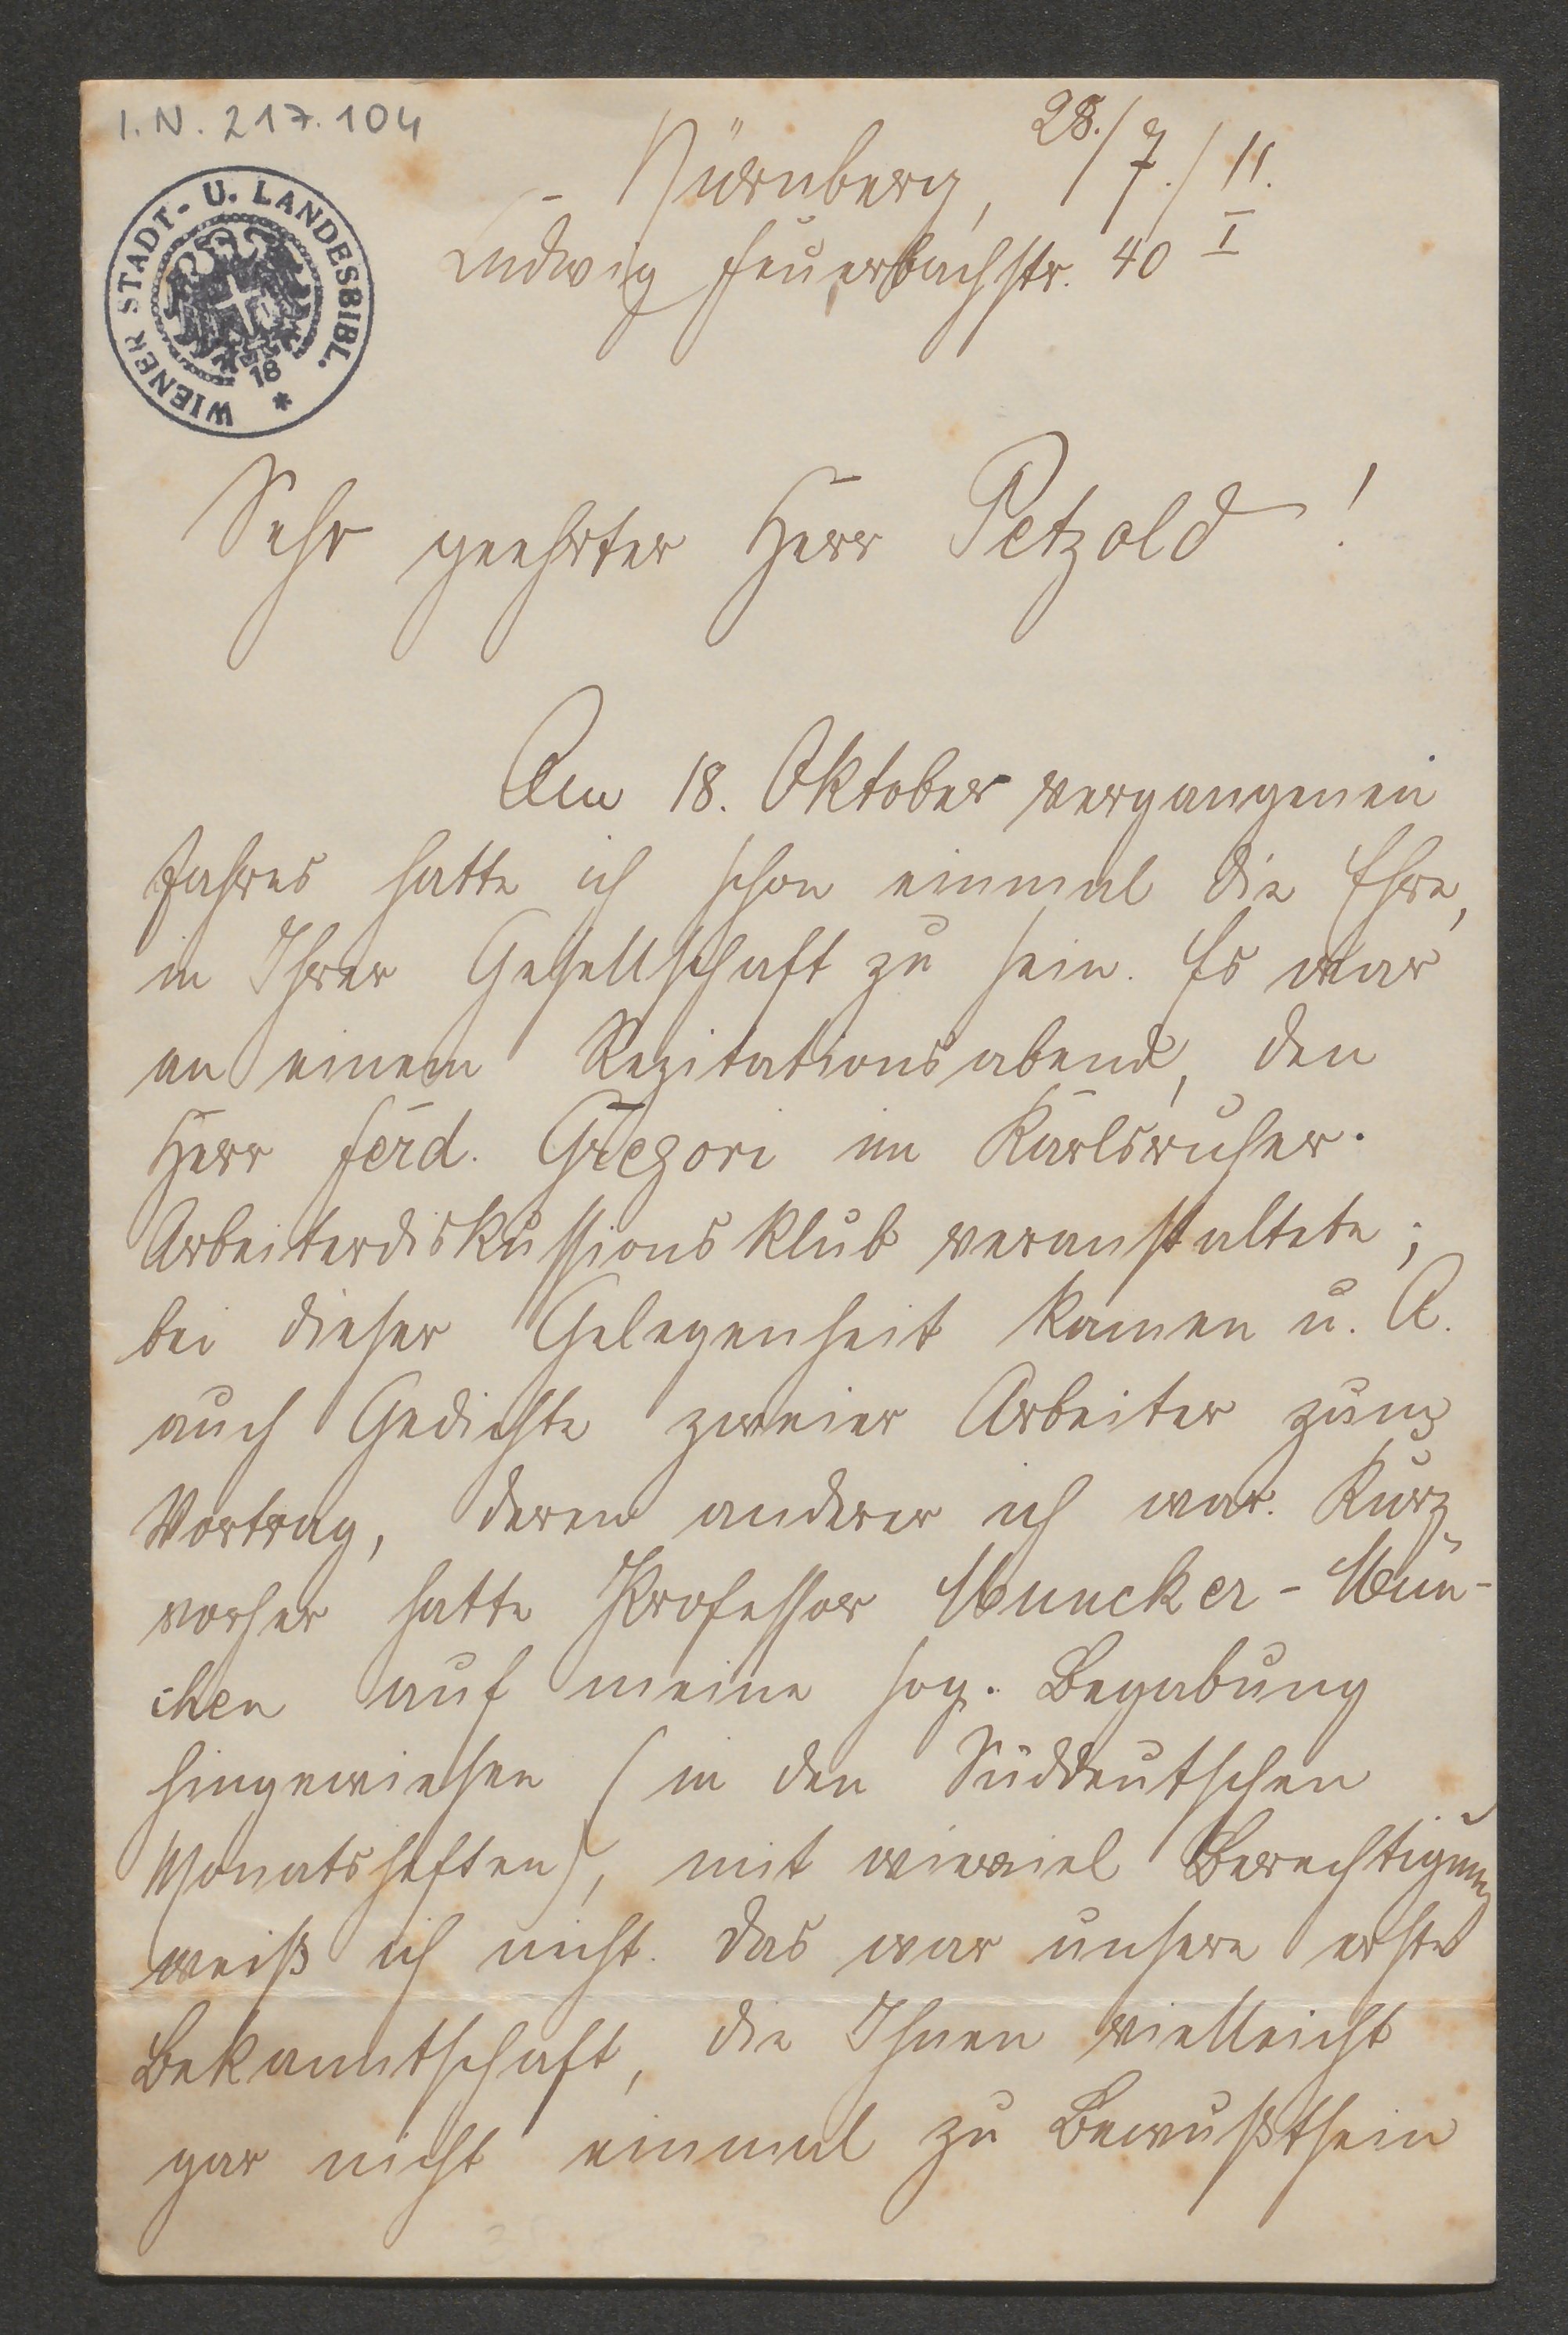 I.N. 217.104
WIENER STADT- U. LANDESBIBL. * 18
Nürnberg, 28./7./11.
Ludwig Feuerbachstr. 40 I
Sehr geehrter Herr Petzold!
Am 18. Oktober vergangenen
Jahres hatte ich schon einmal die Ehre,
in Ihrer Gesellschaft zu sein. Es war
an einem Rezitationsabend, den
Herr Ferd. Gregori im Karlsruher.
Arbeiterdiskussionsklub veranstaltete;
bei dieser Gelegenheit kamen u. A.
auch Gedichte zweier Arbeiter zum
Vortrag, deren anderer ich war. Kurz
vorher hatte Professor Muncker-Mün-
chen auf meine sog. Begabung
hingewiesen (in den Süddeutschen
Monatsheften), mit wieviel Berechtigung
weiß ich nicht. Das war unsere erste
Bekanntschaft, die Ihnen vielleicht
gar nicht einmal zu Bewußtsein